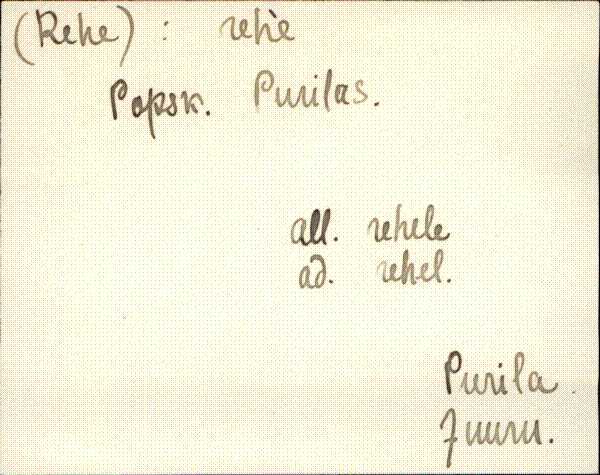 (Rehe) : rehe
Popsk. Purilas.
all. rehele
ad. rehel.
Purila.
Juuru.